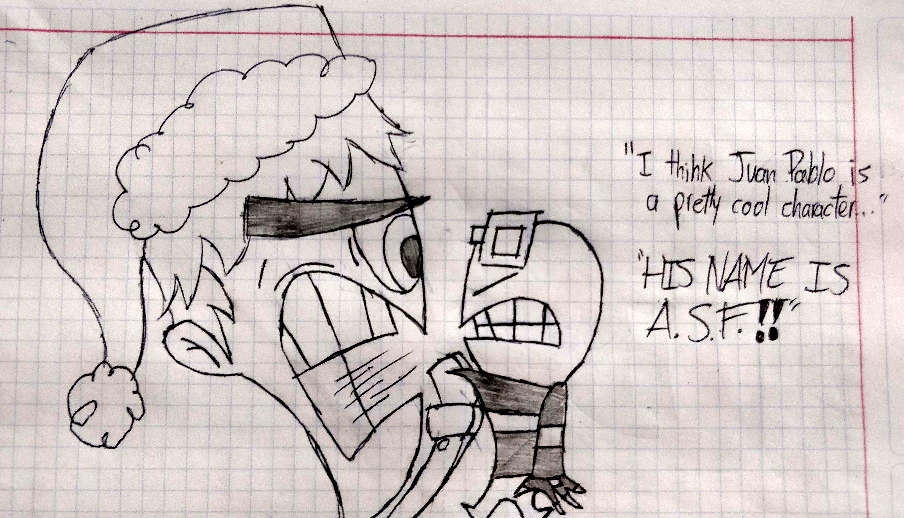 "I think Juan Pablo is
a pretty cool character..."
"HIS NAME IS
A.S.F.!!"